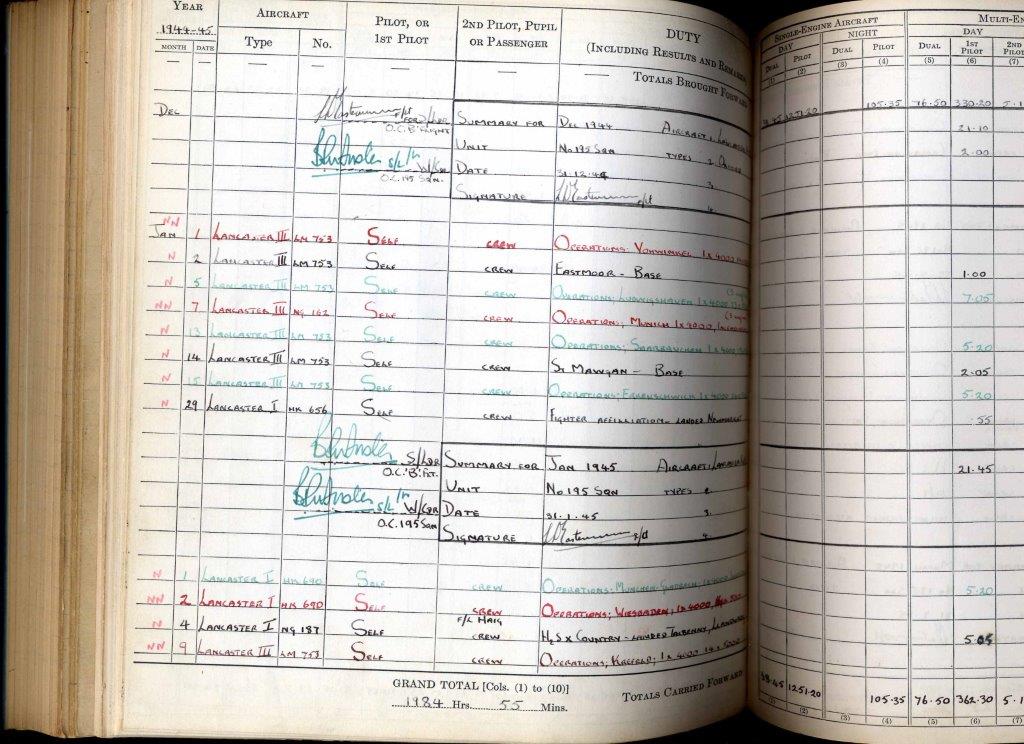 YEAR AIRCRAFT PILOT, OR 1ST PILOT 2ND PILOT, PUPIL OR PASSENGER DUTY (INCLUDING RESULTS AND REMARKS
1944-45
MONTH DATE Type No.
TOTALS BROUGHT FORWARD
SINGLE-ENGINE AIRCRAFT MULTI-EN
DAY NIGHT DAY
DUAL PILOT DUAL PILOT DUAL 1ST PILOT 2ND
(1) (2) (3) (4) (5) (6) (7)
1251.20 105.35 76.50 330.20 5.1
DEC FOR S/LDR SUMMARY FOR DEC 1944 AIRCRAFT 1. 21.10
O.C. 'B' FLIGHT
UNIT No 195 SQN TYPES 2. 2.00
S/L W/CDR DATE 31.12.44 3.
O.C. 195 SQN.
SIGNATURE 4.
NN
JAN 1 LANCASTER III LM 753 SELF CREW OPERATIONS: VOHWINKEL 1 x 4000
N 2 LANCASTER III LM 753 SELF CREW EASTMOOR - BASE 1.00
N 5 LANCASTER III LM 753 SELF CREW OPERATIONS; LUDWIGSHAVEN 1 x 4000 7.05
NN 7 LANCASTER III NG 162 SELF CREW OPERATIONS; MUNICH 1 x 4000,
N 13 LANCASTER III LM 753 SELF CREW OPERATIONS; SAARBRUCKEN 1 x 4000 5.20
N 14 LANCASTER III LM 753 SELF CREW ST MAWGAN - BASE 2.05
N 15 LANCASTER III LM 753 SELF CREW OPERATIONS; 1 x 4000 5.20
N 29 LANCASTER I HK 656 SELF CREW FIGHTER AFFILLIATION - LANDED NEWMARKET .55
S/LDR SUMMARY FOR JAN 1945 AIRCRAFT 1. 21.45
O.C. 'B' FLT.
UNIT No 195 SQN TYPES 2.
S/L W/CDR DATE 31.1.45 3.
O.C. 195 SQN
SIGNATURE 4.
N 1 LANCASTER I HK 690 SELF CREW OPERATIONS: MUNCHEN-GLADBACH 1 x 4000 5.20
NN 2 LANCASTER I HK 690 SELF CREW OPERATIONS; WIESBADEN, 1 x 4000,
F/L HAIG
N 4 LANCASTER I NG 187 SELF CREW H2S X COUNTRY - LANDED TALBENNY, 5.05
NN 9 LANCASTER III LM 753 SELF CREW OPERATIONS; KREFELD; 1 x 4000
GRAND TOTAL [Cols. (1) to (10)]
1984 Hrs. 55 Mins.
TOTALS CARRIED FORWARD
38.45 1251.20 105.35 76.50 362.30 5.1
(1) (2) (3) (4) (5) (6) (7)